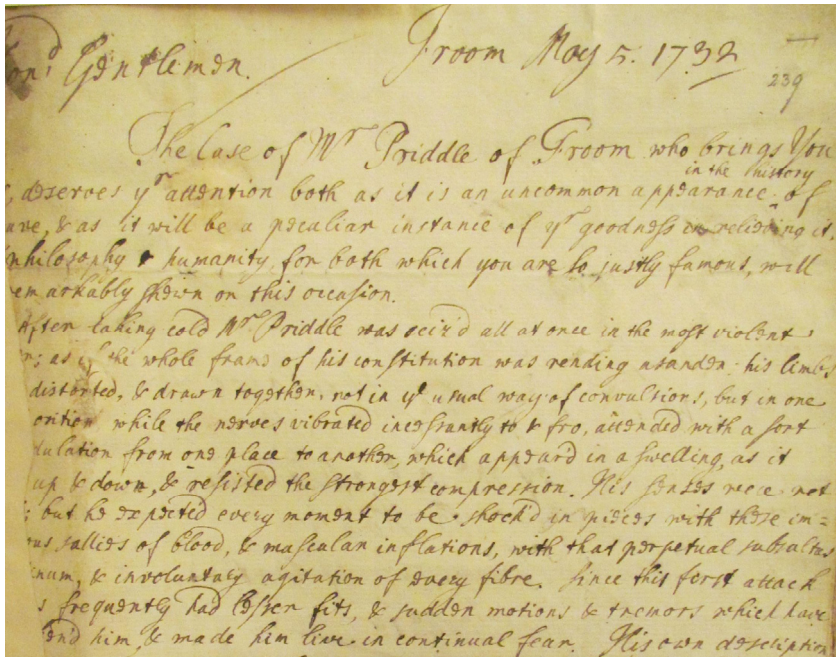 Hon.d Gentlemen. Froom May 5. 1732
239
The Case of Mr Priddle of Froom who brings You
in the history
, deserves yr attention both as it is an uncommon appearance of
& as it will be a peculiar instance of yr goodness in relieving it.
philosophy & humanity, for both which you are so justly famous, will
emarkably shewn on this occasion.
After taking cold Mr Priddle was seiz'd all at once in the most violent
r; as if the whole frame of his constitution was rending asunder; his limbs
distorted, & drawn together, not in ye usual way of convulsions, but in one
while the nerves vibrated incessantly to & fro, attended with a sort
dulation from one place to another, which appear'd in a swelling, as it
up & down, & resisted the strongest compression. His senses were not
; but he expected every moment to be shock'd in pieces with these im=
ous sallies of blood, & muscular inflations, with that perpetual subsultus
inum, & involuntary agitation of every fibre. Since this first attack
s frequently had lesser fits, & sudden motions & tremors which have
him, & made him live in continual fear. His own description